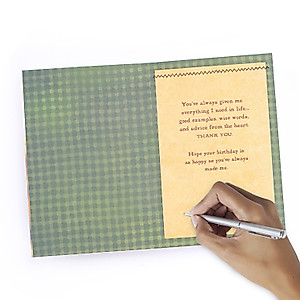 You've always given me
everything I need in life...
good examples, wise words,
and advice from the heart.
THANK YOU.
Hope your birthday is
as happy as you've always
made me.